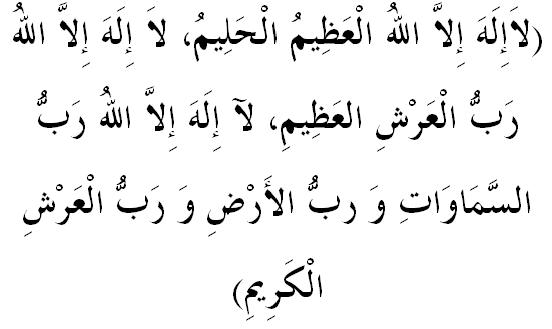 (لاَإِلَهَ إِلاَّ اللهُ الْعَظِيمُ الْحَلِيمُ، لاَ إِلَهَ إِلاَّ اللهُ
رَبُّ الْعَرْشِ العَظِيمِ، لآ إِلَهَ إِلاَّ اللهُ رَبُّ
السَّمَاوَاتِ وَ ربُّ الأَرْضِ وَ رَبُّ الْعَرْشِ
الْكَرِيمِ)